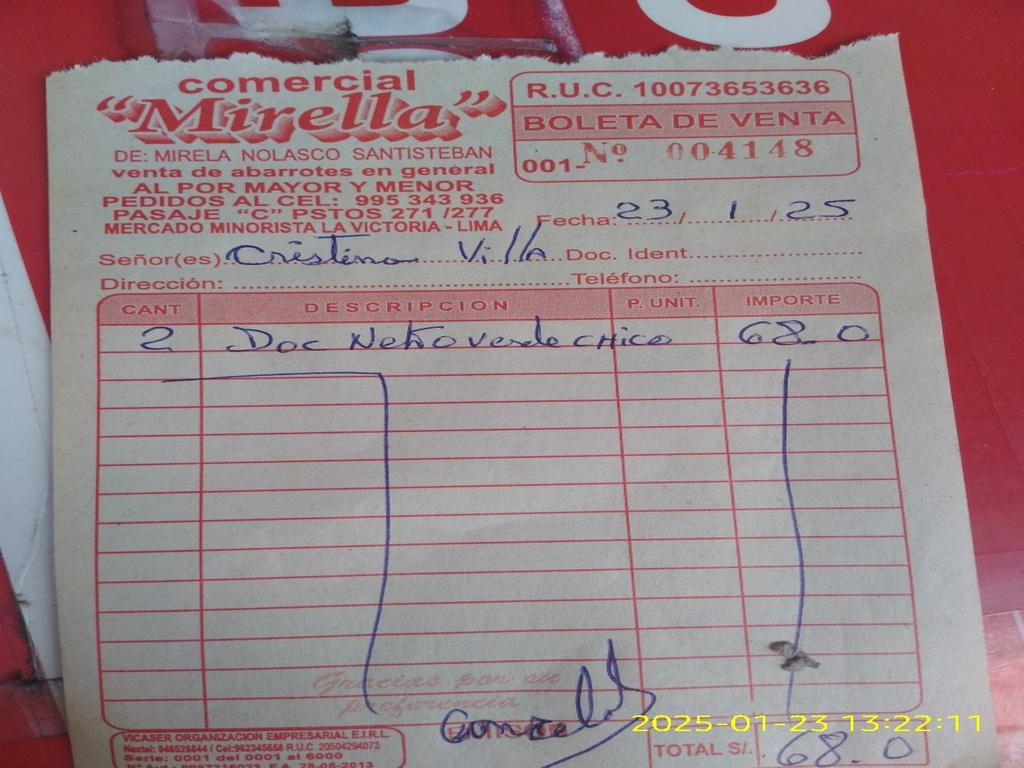 comercial
"Mirella"
DE: MIRELA NOLASCO SANTISTEBAN
venta de abarrotes en general
AL POR MAYOR Y MENOR
PEDIDOS AL CEL: 995 343 936
PASAJE "C" PSTOS 271 /277
MERCADO MINORISTA LA VICTORIA - LIMA
R.U.C. 10073653636
BOLETA DE VENTA
001- Nº 004148
Fecha: 23 / 1 / 25
Señor(es) Cristina Villa Doc. Ident.
Dirección: Teléfono:
CANT DESCRIPCION P. UNIT. IMPORTE
2 Doc Netro verde chico 68.0
Gracias por su
preferencia
2025-01-23 13:22:11
VICASER ORGANIZACION EMPRESARIAL E.I.R.L.
Nextel: 946526844 / Cel:962345658 R.U.C. 20504294073
Serie: 0001 del 0001 al 6000
TOTAL S/. 68.0